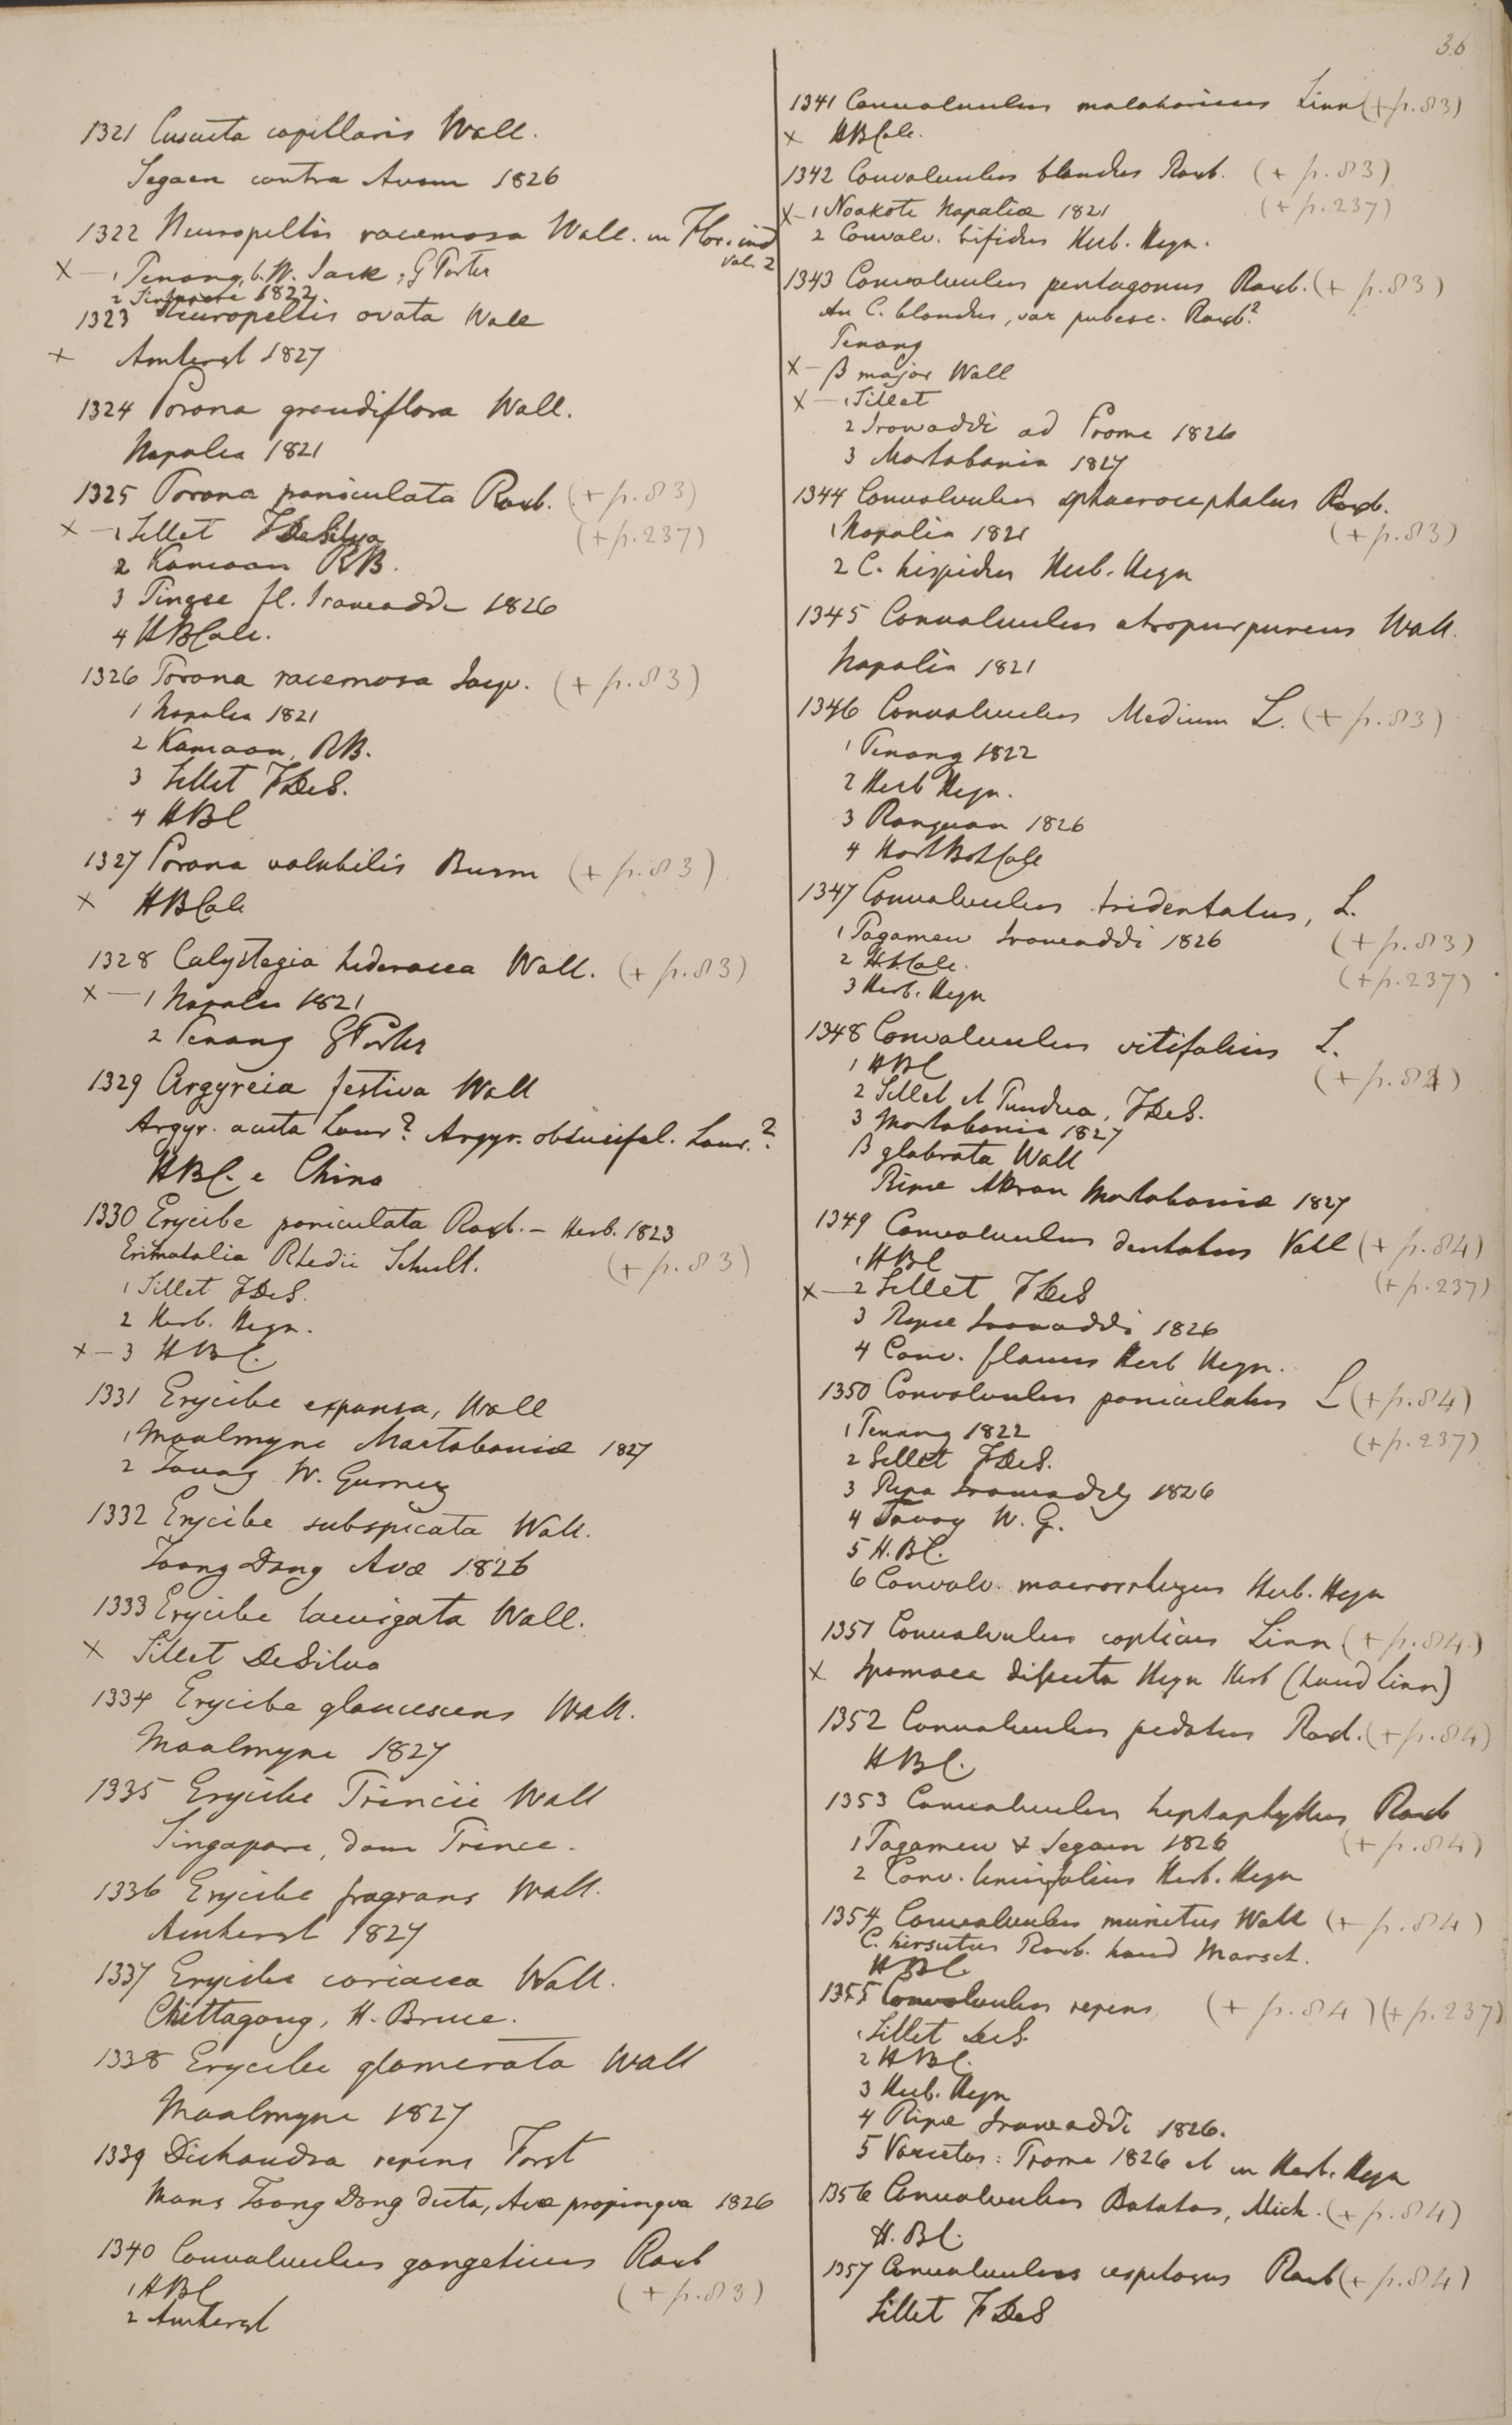 36
1321 Cuscuta capillaris Wall.
Segaen contra Avam 1826
1322 Neuropeltis racemosa Wall. in Flor. ind
vol. 2
X — 1 Penang, b. W. Jack, G Porter
2 Singapore 1822.
1323 Neuropeltis ovata Wall
X Amherst 1827
1324 Porana grandiflora Wall.
Napalia 1821
1325 Porana paniculata Roxb. (+ p. 83)
X — 1 Sillet FDeSilva (+ p. 237)
2 Kamaon RB.
3 Pingee fl. Irawaddi 1826
4 HBCalc.
1326 Porana racemosa Jacq. (+ p. 83)
1 Napalia 1821
2 Kamaon, RB.
3 Sillet FDeS.
4 HBC
1327 Porana volubilis Burm (+ p. 83)
X HBCalc
1328 Calystegia hederacea Wall. (+ p. 83)
X — 1 Napalia 1821
2 Penang GPorter
1329 Argyreia festiva Wall
Argyr. acuta Lour? Argyr. obtusifol. Lour.?
HBC. e China
1330 Erycibe paniculata Roxb. — Herb. 1823
Erimatalia Rhedii Schult. (+ p. 83)
1 Sillet FDeS.
2 Herb. Heyn.
X — 3 HBC.
1331 Erycibe expansa, Wall
1 Moalmyne Martabaniæ 1827
2 Tavoy W. Gomez
1332 Erycibe subspicata Wall.
Toong Dong Avæ 1826
1333 Erycibe laevigata Wall.
X Sillet DeSilva
1334 Erycibe glaucescens Wall.
Moalmyne 1827
1335 Erycibe Princii Wall
Singapore, dom Prince.
1336 Erycibe fragrans Wall.
Amherst 1827
1337 Erycibe coriacea Wall.
Chittagong, H. Bruce.
1338 Erycibe glomerata Wall
Moalmyne 1827
1339 Dichondra repens Forst
Mons Toong Dong dicta, Avæ propinqua 1826
1340 Convolvulus gangeticus Roxb
1 HBC (+ p. 83)
2 Amherst
1341 Convolvulus malabaricus Linn (+ p. 83)
X HBCalc.
1342 Convolvulus blandus Roxb. (+ p. 83)
X — 1 Noakote Napaliæ 1821 (+ p. 237)
2 Convolv. bifidus Herb. Heyn.
1343 Convolvulus pentagonus Roxb. (+ p. 83)
An C. blandus, var pubesc. Roxb?
Penang
X — β major Wall
X — 1 Sillet
2 Irawaddi ad Prome 1826
3 Martabania 1827
1344 Convolvulus sphaerocephalus Roxb.
1 Napalia 1821 (+ p. 83)
2 C. hispidus Herb. Heyn
1345 Convolvulus atropurpureus Wall.
Napalia 1821
1346 Convolvulus Medium L. (+ p. 83)
1 Penang 1822
2 Herb Heyn.
3 Rangoon 1826
4 HortBotCalc
1347 Convolvulus tridentatus, L.
1 Pagamew Irawaddi 1826 (+ p. 83)
2 H.B.Calc. (+ p. 237)
3 Herb. Heyn
1348 Convolvulus vitifolius L.
1 HBC (+ p. 84)
2 Sillet et Pundua, FDeS.
3 Martabania 1827
β glabrata Wall
Ripæ Attran Martabaniæ 1827
1349 Convolvulus dentatus Vahl (+ p. 84)
1 HBC (+ p. 237)
X — 2 Sillet FDeS
3 Ripæ Irawaddi 1826
4 Conv. flavus Herb Heyn.
1350 Convolvulus paniculatus L (+ p. 84)
1 Penang 1822 (+ p. 237)
2 Sillet FDeS.
3 Ripa Irawaddy 1826
4 Tavoy W. G.
5 H. BC.
6 Convolv. macrorrhizus Herb. Heyn
1351 Convolvulus copticus Linn (+ p. 84)
X Ipomaea dissecta Heyn Herb (haud Linn)
1352 Convolvulus pedatus Roxb. (+ p. 84)
HBC.
1353 Convolvulus heptaphyllus Roxb
1 Pagamew & Segaen 1826 (+ p. 84)
2 Conv. tenuifolius Herb. Heyn
1354 Convolvulus munitus Wall (+ p. 84)
C. hirsutus Roxb. haud Marsch.
HBC
1355 Convolvulus repens (+ p. 84) (+ p. 237)
1 Sillet DeS.
2 HBC.
3 Herb. Heyn
4 Ripæ Irawaddi 1826.
5 Varietas: Prome 1826 et in Herb. Heyn
1356 Convolvulus Batatas, Mich. (+ p. 84)
H. BC.
1357 Convolvulus cespitosus Roxb (+ p. 84)
Sillet FDeS